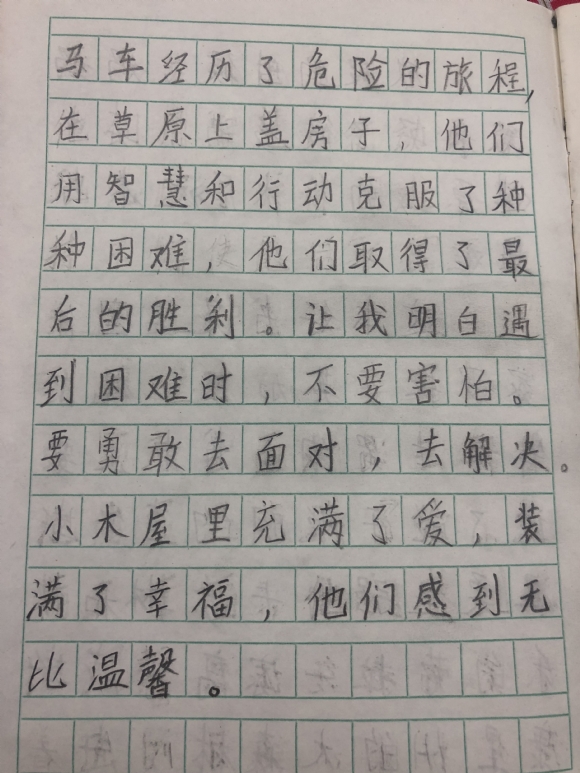 马车经历了危险的旅程,
在草原上盖房子，他们
用智慧和行动克服了种
种困难，他们取得了最
后的胜利。让我明白遇
到困难时，不要害怕。
要勇敢去面对，去解决。
小木屋里充满了爱，装
满了幸福，他们感到无
比温馨。